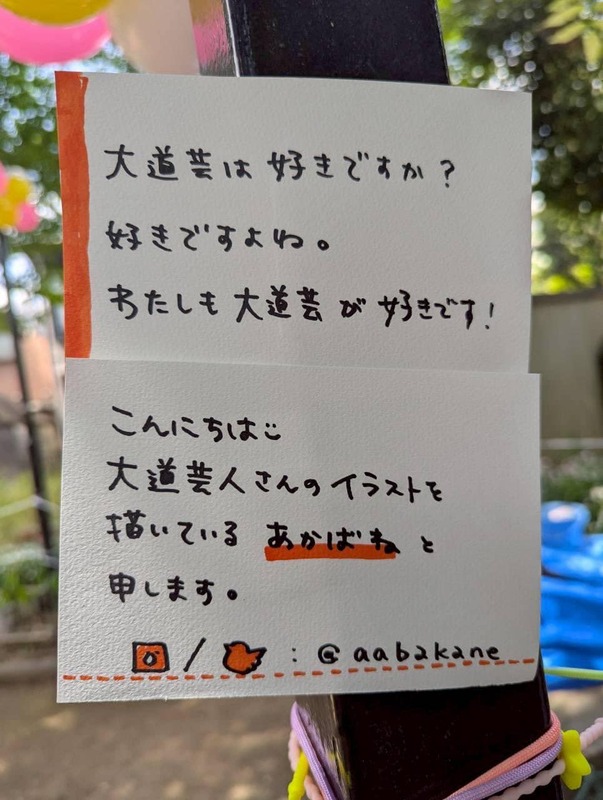 大道芸は好きですか?
好きですよね。
わたしも大道芸が好きです!
こんにちは
大道芸人さんのイラストを
描いている あかばね と
申します。
/ : @aabakane